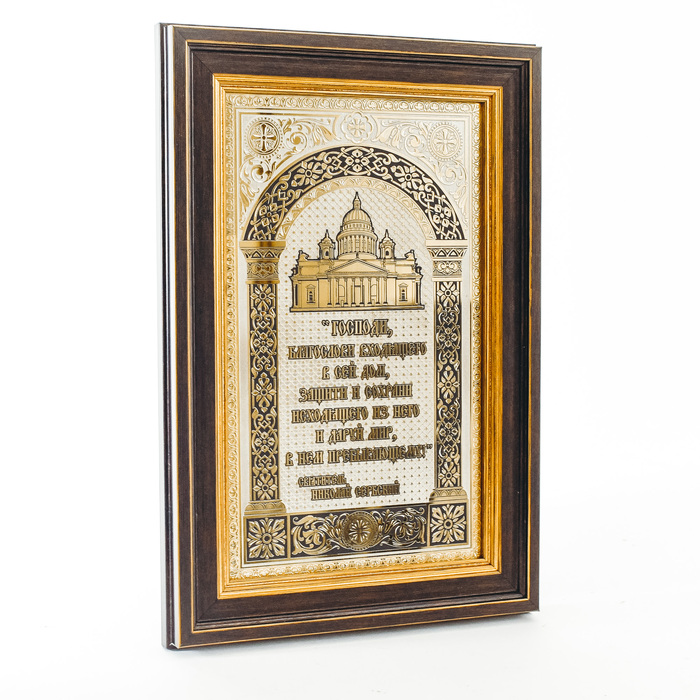 "ГОСПОДИ,
БЛАГОСЛОВИ ВХОДЯЩЕГО
В СЕЙ ДОМ,
ЗАЩИТИ И СОХРАНИ
ИСХОДЯЩЕГО ИЗ НЕГО
И ДАРУЙ МИР,
В НЕМ ПРЕБЫВАЮЩЕМУ!"
СВЯТИТЕЛЬ
НИКОЛАЙ СЕРБСКИЙ